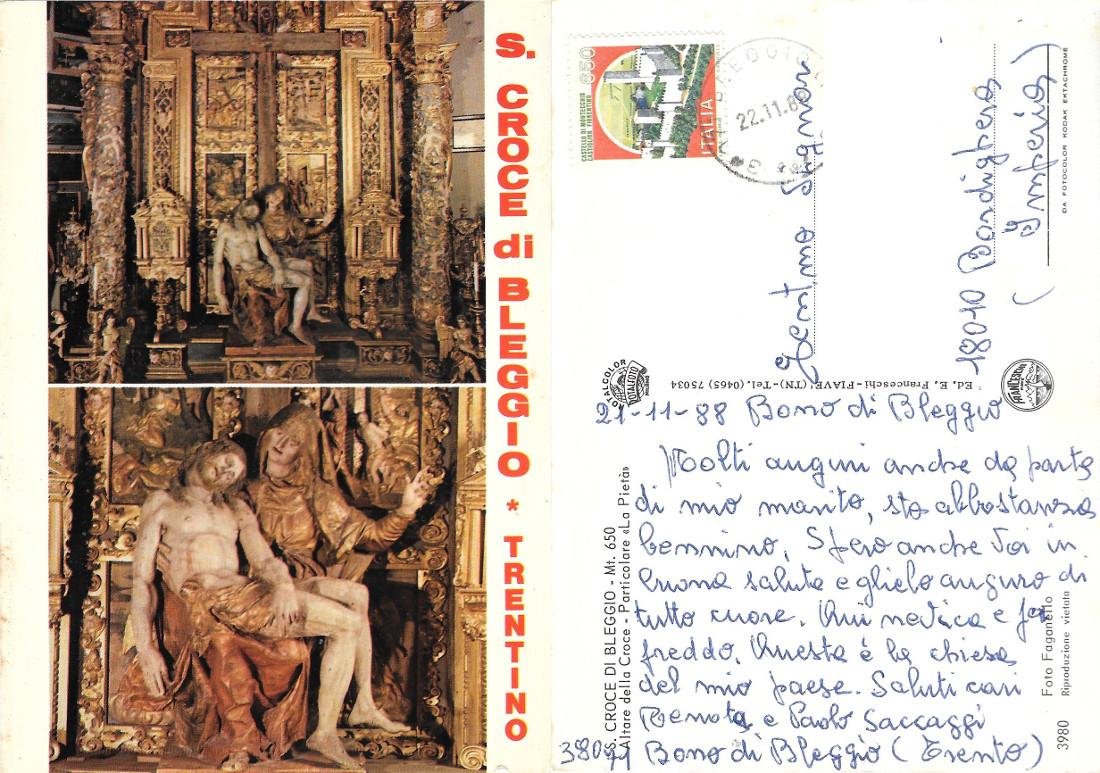 S. CROCE di BLEGGIO * TRENTINO
650
CASTELLO DI MONTECCHIO
CASTIGLION FIORENTINO
ITALIA
BLEGGIO
22.11.8
Gent.mo Signor
18010 Bordighera
(Imperia)
DA FOTOCOLOR KODAK EKTACHROME
ROTALCOLOR
ROTALFOTO
MILANO
Ed. E. Franceschi - FIAVE' (TN) - Tel. (0465) 75034
FRANCESCHI
21-11-88 Bono di Bleggio
Molti auguri anche da parte
di mio marito, sto abbastanza
bennino, Spero anche Voi in
buona salute e glielo auguro di
tutto cuore. Qui nevica e fa
freddo. Questa è la chiesa
del mio paese. Saluti cari
Renata e Paolo Saccaggi
38071 Bono di Bleggio (Trento)
S. CROCE DI BLEGGIO - Mt. 650
Altare della Croce - Particolare «La Pietà»
Foto Faganello
Riproduzione vietata
3980